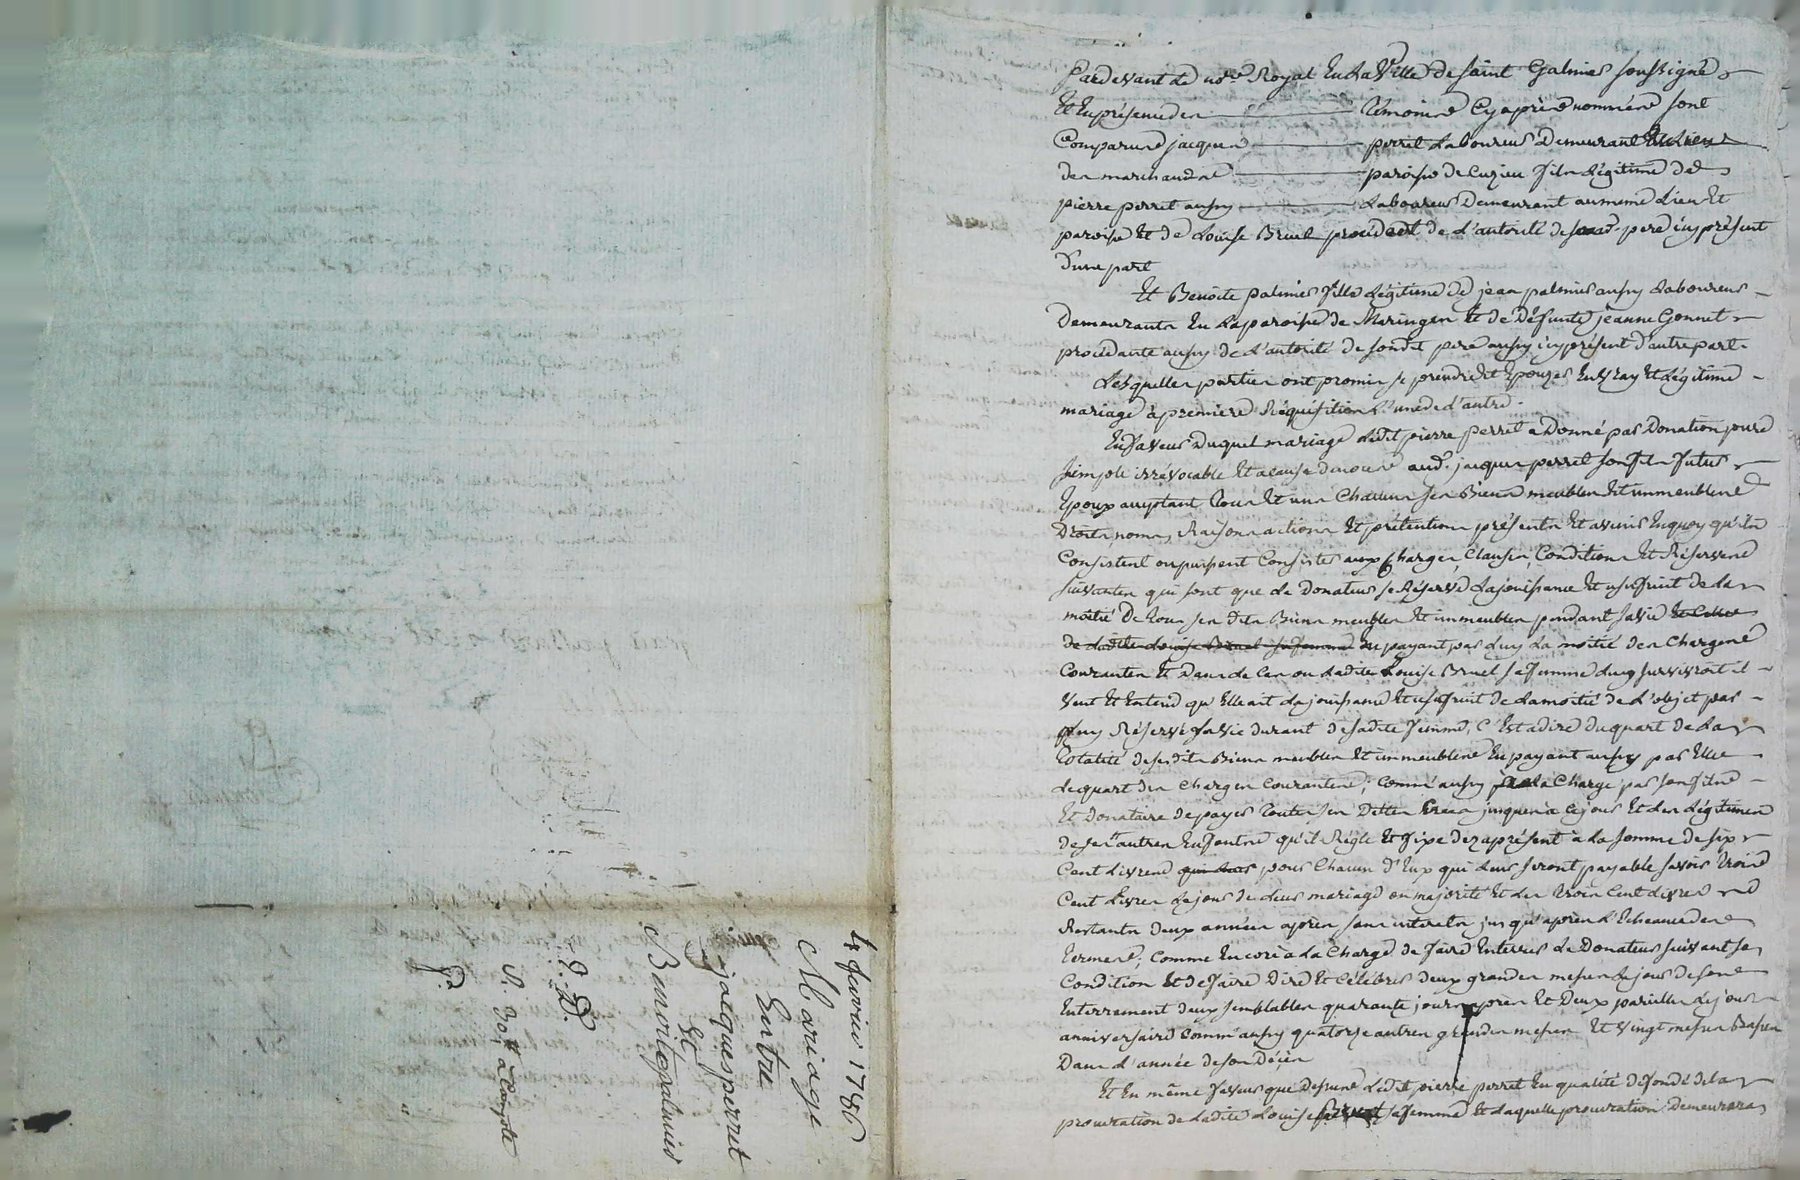 4 fevrier 1786
Mariage
Entre
jacques perret
Et
Benoite palmier
E. D.
S. 30tt a Compte
Pardevant Le nore Royal En La Ville de saint Galmier soussigné
Et En présence des témoins Cy après nommés sont
Comparus jacques perret Laboureur Demeurant Au Lieu
des marchands paroisse de Cuzieu fils Légitime de
pierre perret aussy Laboureur Demeurant au meme Lieu Et
paroisse Et de Louise Bruel procedant de L'autorité de sond. pere icy présent
D'une part
Et Benoite palmier fille Légitime de jean palmier aussy Laboureur
Demeurants En La paroisse de Maringes Et de Défunte jeanne Gonnet
procédante aussy de L'autorité de sondit pere aussy icy présent d'autre part.
Lesquelles parties ont promis se prendre Et Epouzer En vray Et Légitime
mariage à premiere Réquisition L'une de L'autre.
En faveur Duquel mariage Ledit pierre perret a Donné par Donation pure
simple irrévocable Et a cause de noces aud. jacques perret son fils futur
Epoux acceptant tous Et uns Chacuns ses Biens meubles Et immeubles
Droits, noms, Raisons actions Et prétentions présents Et avenir En quoy qu'ils
Consistent ou puissent Consister aux Charges, Clauses, Conditions Et Réserves
suivantes qui sont que Le Donateur se Réserve La jouissance Et usufruit de La
moitié De tous ses dits Biens meubles Et immeubles pendant sa vie Et Celle
de Ladite Louise Bruel sa femme En payant par Luy La moitié des Charges
Courantes Et Dans Le Cas ou Ladite Louise Bruel sa femme Luy survivroit il
Veut Et Entend qu'Elle ait La jouissance Et usufruit de La moitié de L'objet par
Luy Réservé La vie durant de sadite femme, C'Est a dire du quart de La
totalité de ses dits Biens meubles Et immeubles En payant aussy par Elle
Le quart des Charges Courantes; Comme aussy à La Charge par son fils
Et Donataire de payer toutes ses Dettes Créées jusques à Ce jour Et Les Légitimes
de ses autres Enfants qu'il Règle Et fixe dez aprésent à La somme de six
Cent Livres pour Chacun D'Eux qui Leur seront payable savoir trois
Cent Livres Le jour de Leur mariage ou majorité Et Les trois Cent Livres
Restants deux années apres sans interets jusqu'apres L'Echeance des
termes; Comme Encore à La Charge de faire Enterrer Le Donateur suivant sa
Condition Et de faire Dire Et Célébrer deux grandes messes Le jour de son
Enterrement deux semblables quarante jours apres Et Deux pareilles Le jour
anniversaire Comm'aussy quatorze autres grandes messes Et Vingt messes Basses
Dans L'année de son Décès
Et En même faveur que Dessus Ledit pierre perret En qualité de fondé de La
procuration de Ladite Louise Bruel sa femme Et Laquelle procuration Demeurera